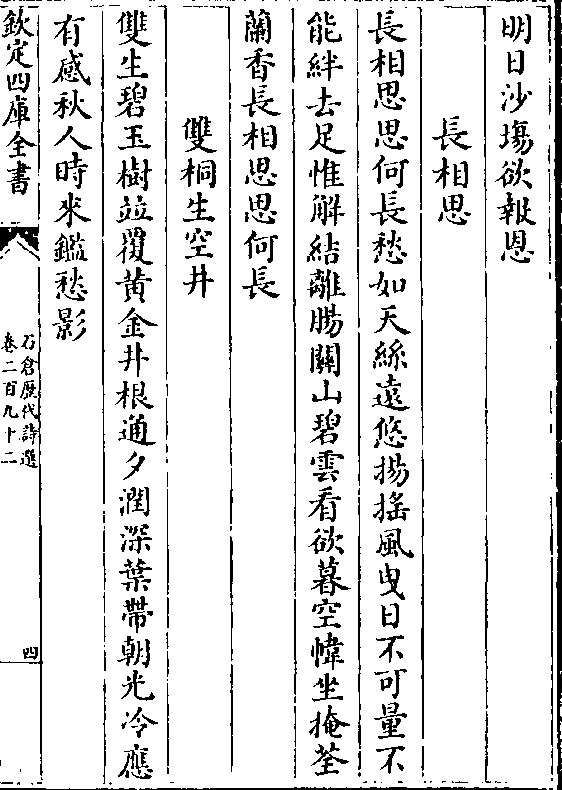 明日沙塲欲報恩
長相思
長相思思何長愁如天絲遠悠揚搖風曳日不可量不
能絆去足惟解結離腸關山碧雲看欲暮空幃坐掩荃
蘭香長相思思何長
雙桐生空井
雙生碧玉樹並覆黄金井根通夕潤深葉帶朝光冷應
有感秋人時来鑑愁影
欽定四庫全書
石倉歷代詩選
卷二百九十二
四